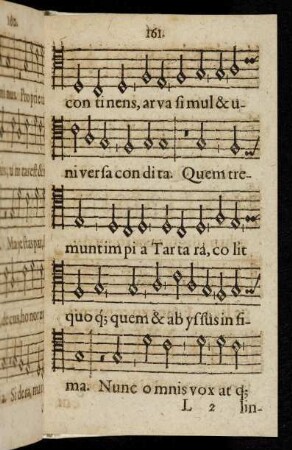 161.
con ti nens, arva si mul & u-
ni versa con di ta. Quem tre-
munt im pi a Tar ta ra, co lit
quo q́; quem & ab yssus in fi-
ma. Nunc o mnis vox at q́;
L 2 lin-